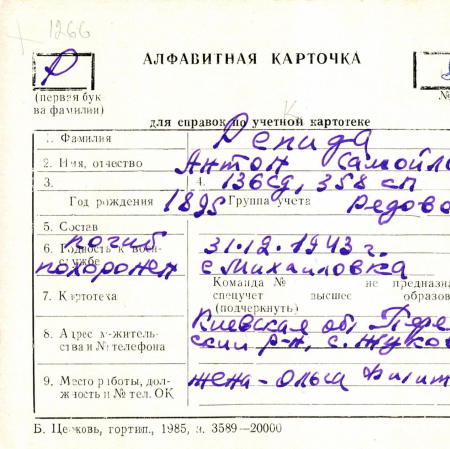 1266
Р
АЛФАВИТНАЯ КАРТОЧКА
(первая бук-
ва фамилии)
№
для справок по учетной картотеке
1. Фамилия Репида
2. Имя, отчество Антон Самойло
3. 4. 136 сд, 358 сп
Год рождения 1895 Группа учета Рядово
5. Состав
6. Годность к воен- погиб 31.12.1943 г.
службе похоронен с Михайловка
7. Картотека Команда № не предназна
спецучет высшее образов
(подчеркнуть)
8. Адрес жительства и № телефона Киевская об, ский р-н, с. Жуков
9. Место работы, дол- жена - Ольга
жность и № тел. ОК
Б. Церковь, гортип., 1985, з. 3589—20000